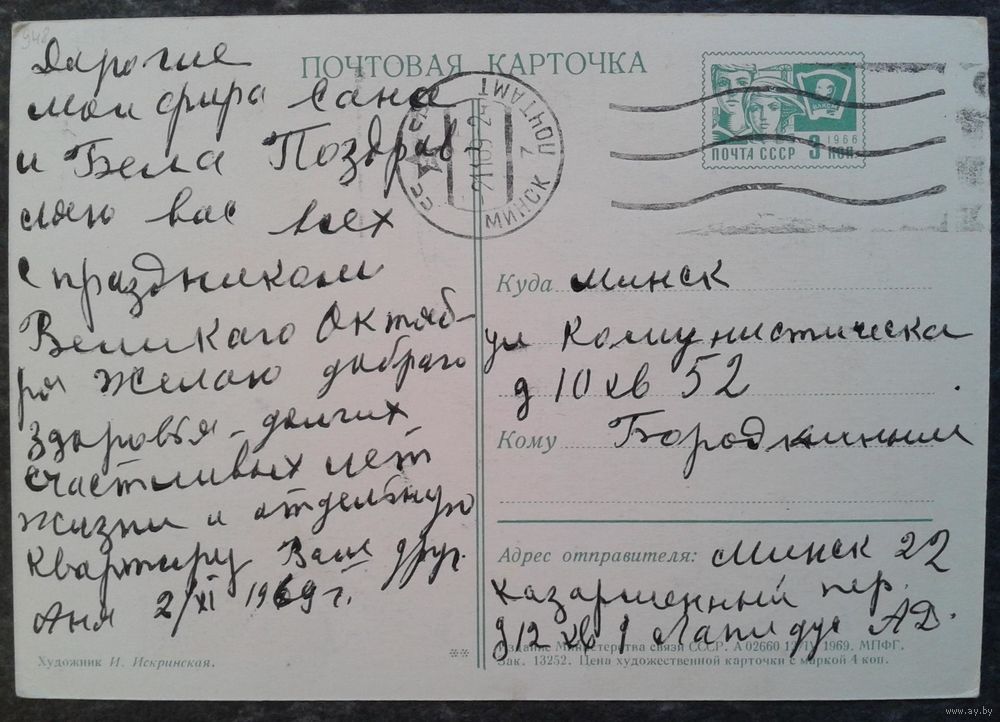 948
Дарогие
мои фира Сана
и Бела Поздрав
ляю вас всех
с праздником
Великаго Октяб-
ря Желаю добраго
здоровья - долгих
счастливых лет
жизни и отдельную
квартиру Ваш друг.
Аня 2/XI 1969 г.
Художник И. Искринская.
**
ПОЧТОВАЯ КАРТОЧКА
МИНСК
ПОЧТАМТ
7
ВЛКСМ
1966
ПОЧТА СССР 3 КОП
Куда Минск
ул Комунистическа
д 10 кв 52
Кому Бородкиным
Адрес отправителя: Минск 22
Казарменный пер.
д 12 кв 1 Лапидус АД.
Издание Министерства связи СССР. А 02660 12/IV 1969. МПФГ.
Зак. 13252. Цена художественной карточки с маркой 4 коп.
www.ay.by